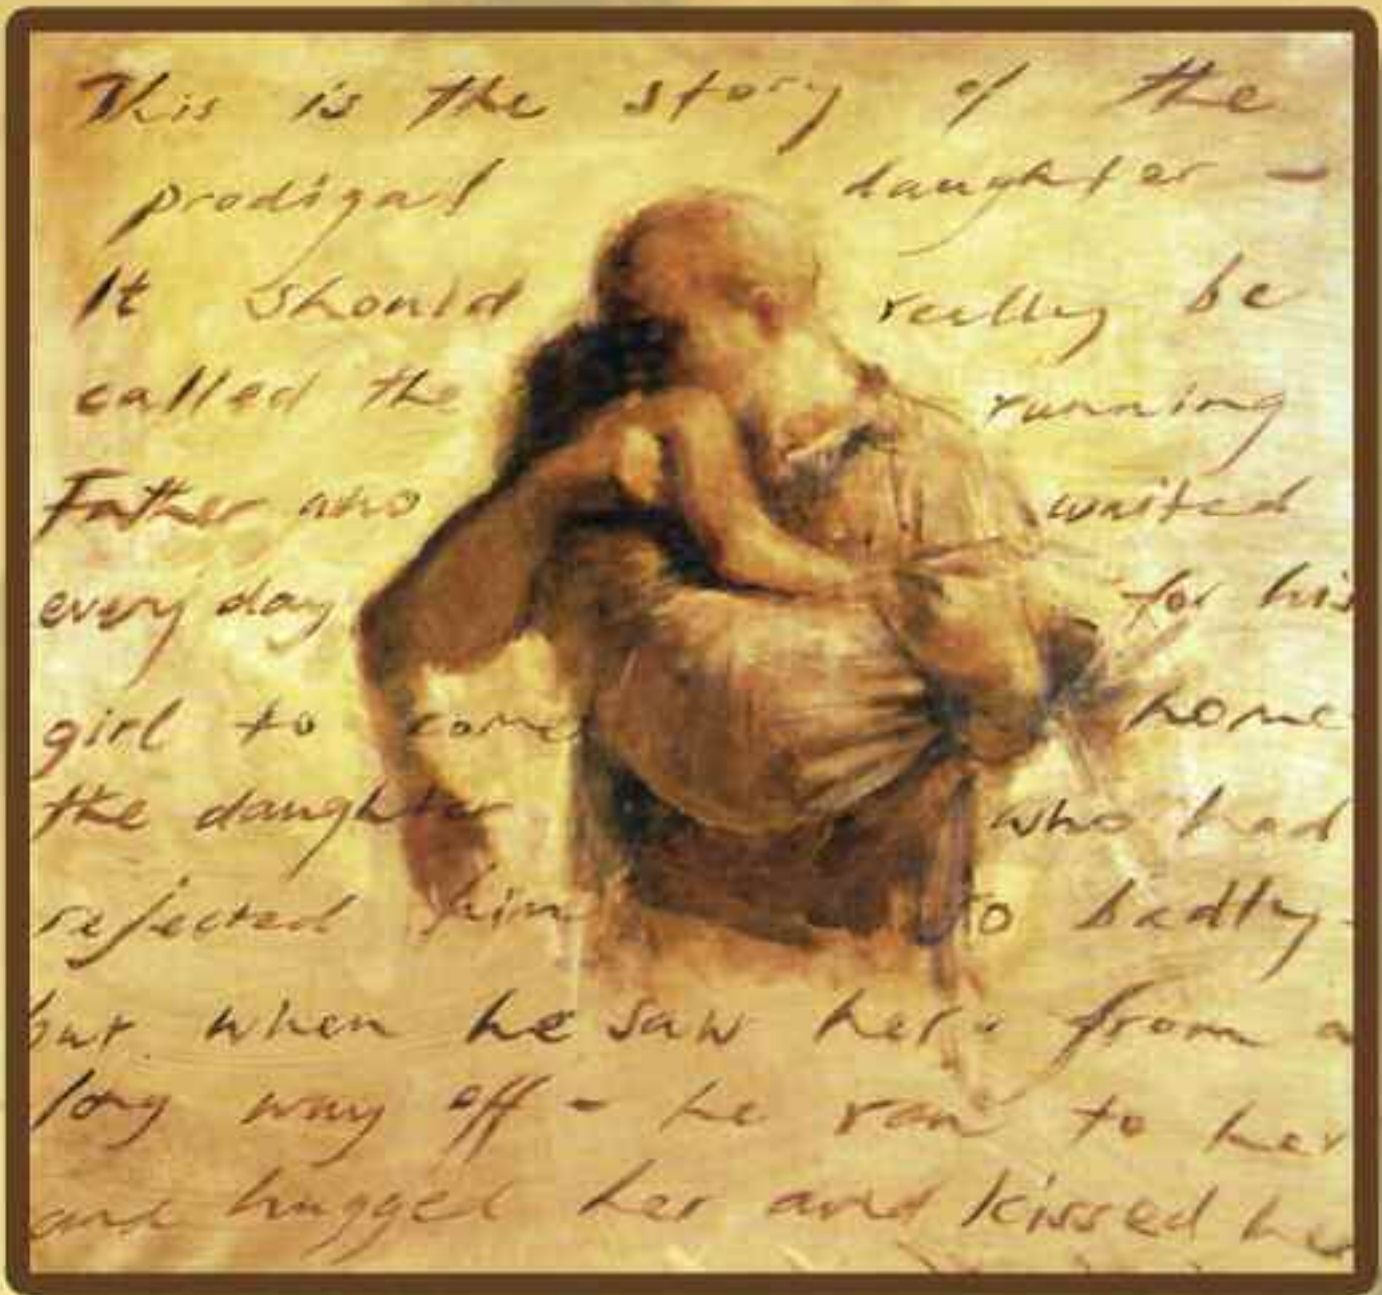 This is the story of the
prodigal daughter -
It should really be
called the running
Father who waited
every day for his
girl to come home
the daughter who had
rejected him so badly -
but when he saw her. from a
long way off - he ran to her
and hugged her and kissed her